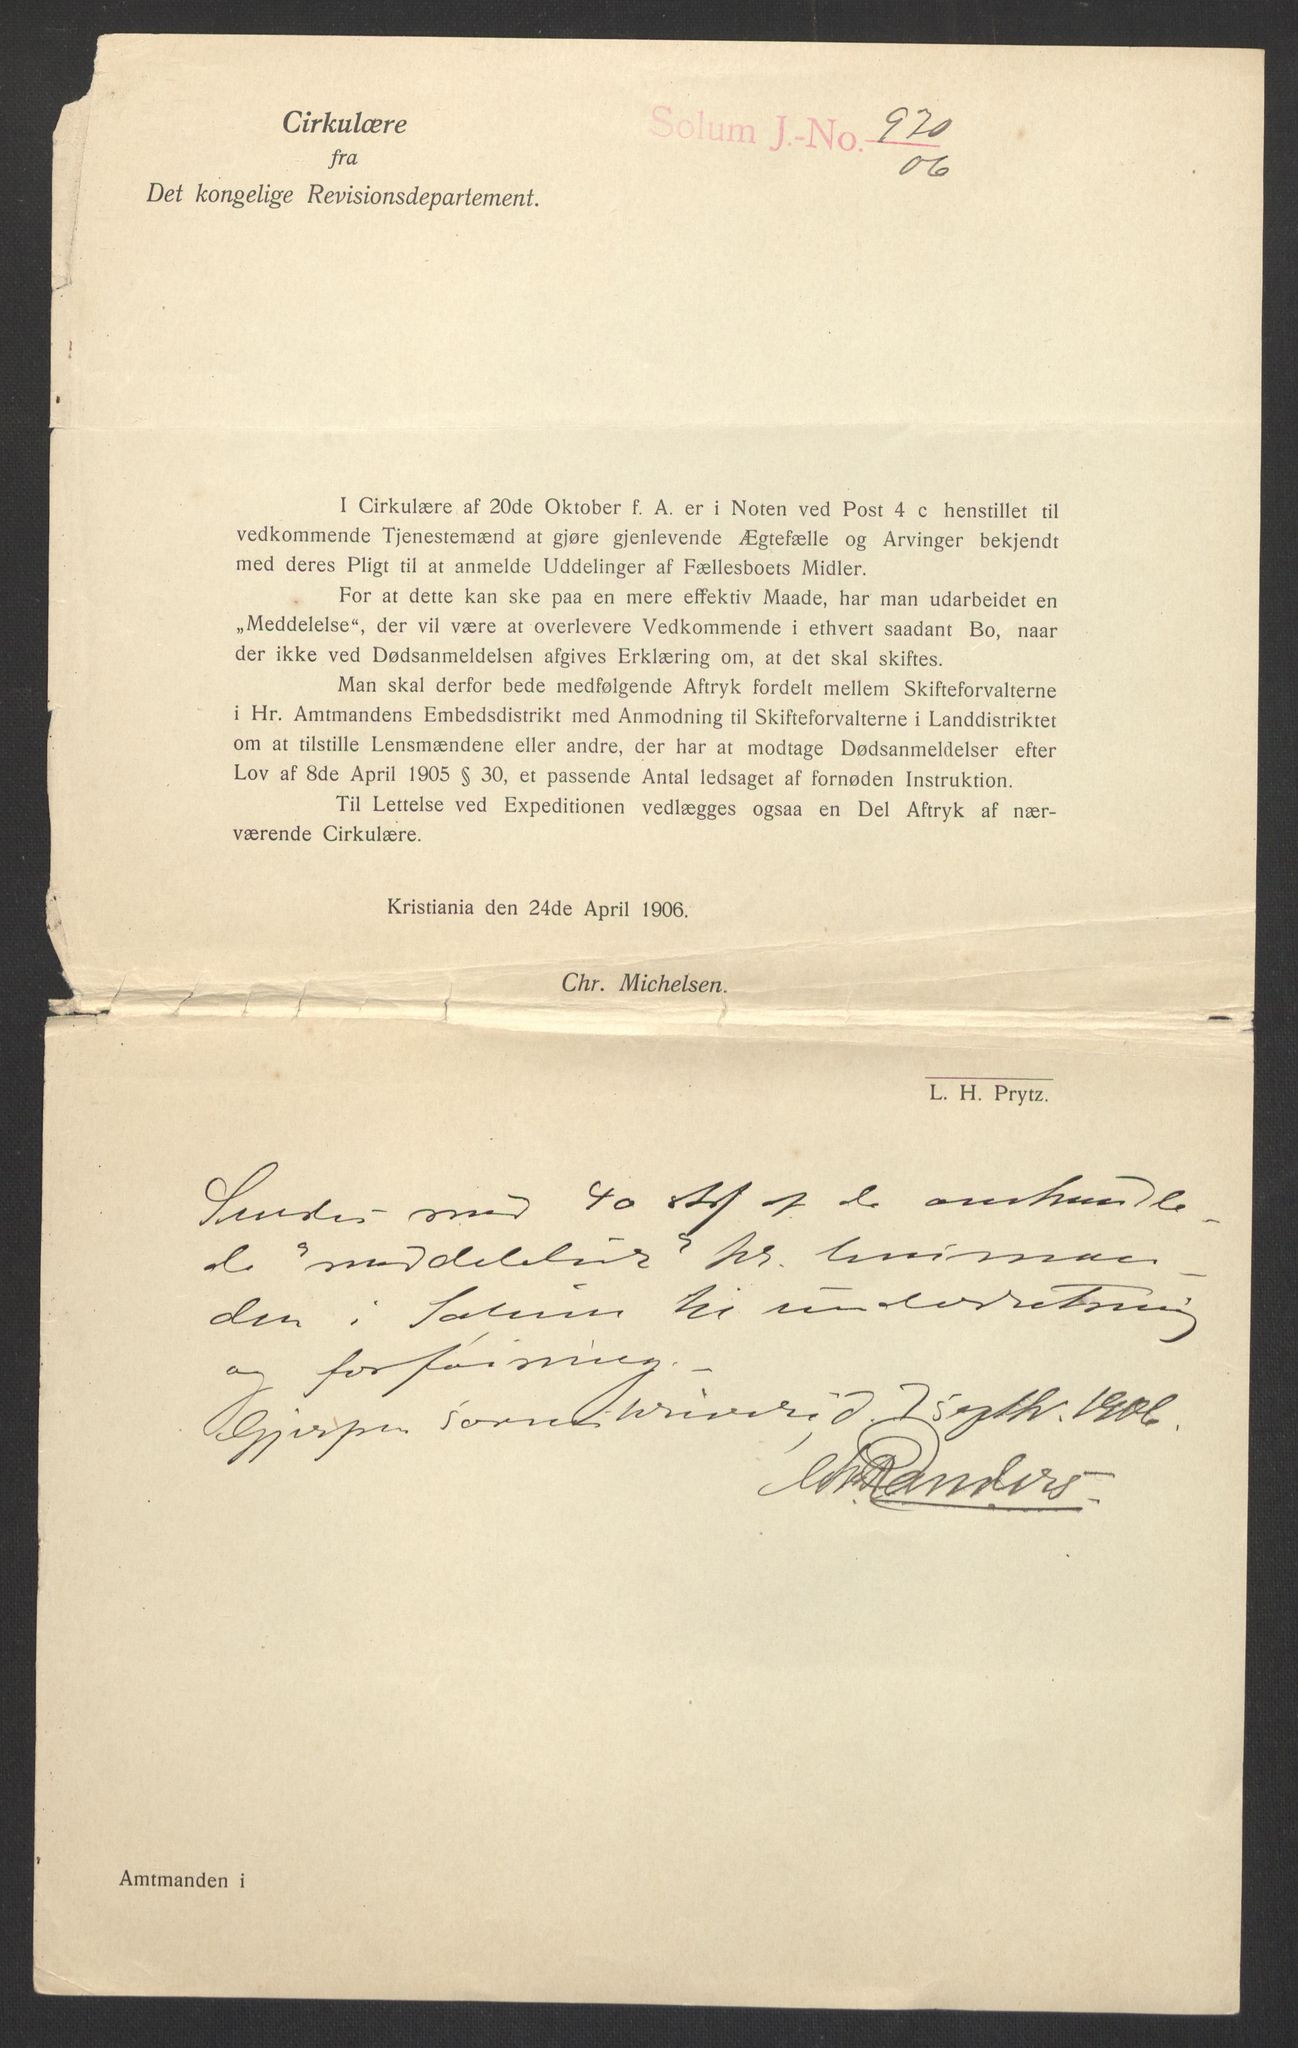 Cirkulære
fra
Det kongelige Revisionsdepartement.
Solum J.-No. 970
06
I Cirkulære af 20de Oktober f. A. er i Noten ved Post 4 c henstillet til
vedkommende Tjenestemænd at gjøre gjenlevende Ægtefælle og Arvinger bekjendt
med deres Pligt til at anmelde Uddelinger af Fællesboets Midler.
For at dette kan ske paa en mere effektiv Maade, har man udarbeidet en
„Meddelelse“, der vil være at overlevere Vedkommende i ethvert saadant Bo, naar
der ikke ved Dødsanmeldelsen afgives Erklæring om, at det skal skiftes.
Man skal derfor bede medfølgende Aftryk fordelt mellem Skifteforvalterne
i Hr. Amtmandens Embedsdistrikt med Anmodning til Skifteforvalterne i Landdistriktet
om at tilstille Lensmændene eller andre, der har at modtage Dødsanmeldelser efter
Lov af 8de April 1905 § 30, et passende Antal ledsaget af fornøden Instruktion.
Til Lettelse ved Expeditionen vedlægges ogsaa en Del Aftryk af nær-
værende Cirkulære.
Kristiania den 24de April 1906.
Chr. Michelsen.
L. H. Prytz.
Sendes med 40 af de omhandle-
de "meddelelser" hr. lensman-
den i Solum til underretning
og forføining.-
Gjerpen sorenskriveri d. 7 septbr. 1906.
Randers
Amtmanden i